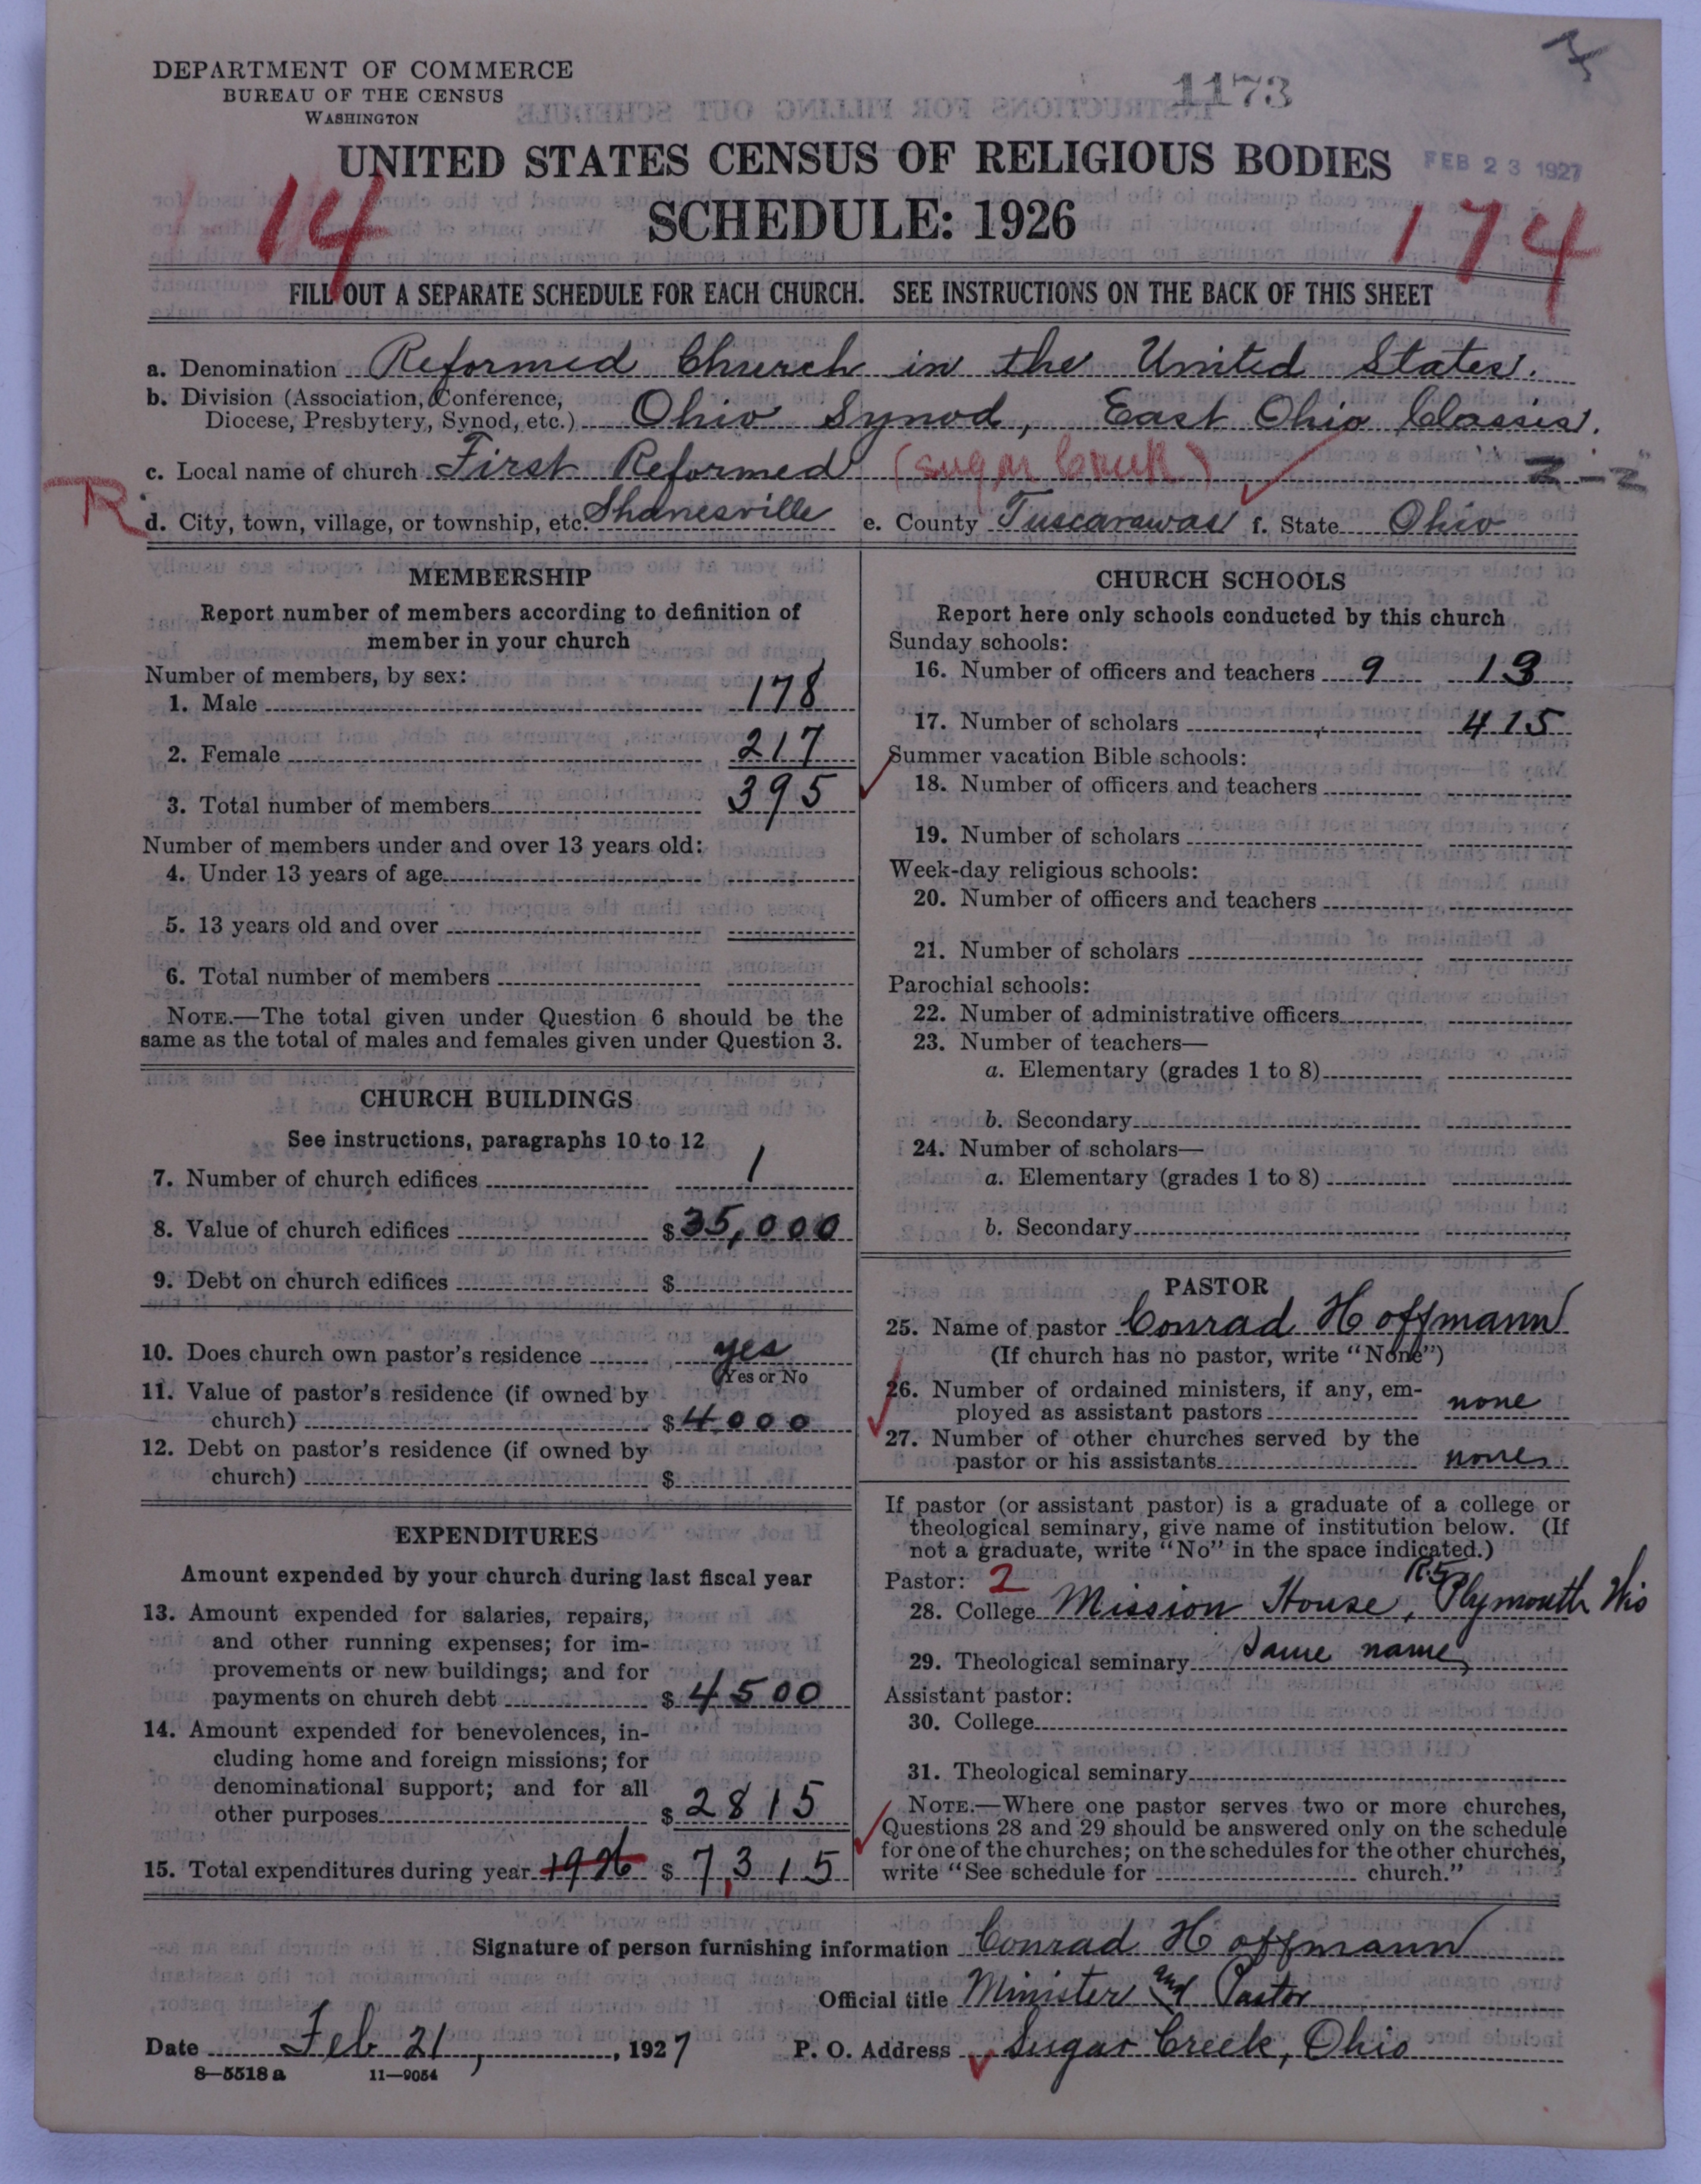 DEPARTMENT OF COMMERCE
BUREAU OF THE CENSUS
WASHINGTON
1173
UNITED STATES CENSUS OF RELIGIOUS BODIES
FEB 23 1927
SCHEDULE: 1926
14
174
FILL OUT A SEPARATE SCHEDULE FOR EACH CHURCH. SEE INSTRUCTIONS ON THE BACK OF THIS SHEET
a. Denomination Reformed Church in the United States.
b. Division (Association, Conference,
Diocese, Presbytery, Synod, etc.) Ohio Synod, East Ohio Classis.
c. Local name of church First Reformed (Sugar Creek)
R
d. City, town, village, or township, etc. Shanesville e. County Tuscarawas f. State Ohio
MEMBERSHIP
Report number of members according to definition of
member in your church
Number of members, by sex:
1. Male 178
2. Female 217
3. Total number of members 395
Number of members under and over 13 years old:
4. Under 13 years of age
5. 13 years old and over
6. Total number of members
NOTE.—The total given under Question 6 should be the
same as the total of males and females given under Question 3.
CHURCH BUILDINGS
See instructions, paragraphs 10 to 12
7. Number of church edifices 1
8. Value of church edifices $35,000
9. Debt on church edifices $
10. Does church own pastor's residence yes
(Yes or No
11. Value of pastor's residence (if owned by
church) $4000
12. Debt on pastor's residence (if owned by
church) $
EXPENDITURES
Amount expended by your church during last fiscal year
13. Amount expended for salaries, repairs,
and other running expenses; for im-
provements or new buildings; and for
payments on church debt $4500
14. Amount expended for benevolences, in-
cluding home and foreign missions; for
denominational support; and for all
other purposes $2815
15. Total expenditures during year 1926 $7,315
CHURCH SCHOOLS
Report here only schools conducted by this church
Sunday schools:
16. Number of officers and teachers 9 13
17. Number of scholars 415
Summer vacation Bible schools:
18. Number of officers and teachers
19. Number of scholars
Week-day religious schools:
20. Number of officers and teachers
21. Number of scholars
Parochial schools:
22. Number of administrative officers
23. Number of teachers—
a. Elementary (grades 1 to 8)
b. Secondary
24. Number of scholars—
a. Elementary (grades 1 to 8)
b. Secondary
PASTOR
25. Name of pastor Conrad Hoffmann
(If church has no pastor, write "None")
26. Number of ordained ministers, if any, em-
ployed as assistant pastors none
27. Number of other churches served by the
pastor or his assistants none
If pastor (or assistant pastor) is a graduate of a college or
theological seminary, give name of institution below. (If
not a graduate, write "No" in the space indicated.)
Pastor: 2
R.5
28. College Mission House, Plymouth Wis
29. Theological seminary Same name
Assistant pastor:
30. College
31. Theological seminary
NOTE.—Where one pastor serves two or more churches,
Questions 28 and 29 should be answered only on the schedule
for one of the churches; on the schedules for the other churches,
write "See schedule for church."
Signature of person furnishing information Conrad Hoffmann
Official title Minister and Pastor
Date Feb 21, 1927 P. O. Address Sugar Creek, Ohio
8—5518 a 11—9054